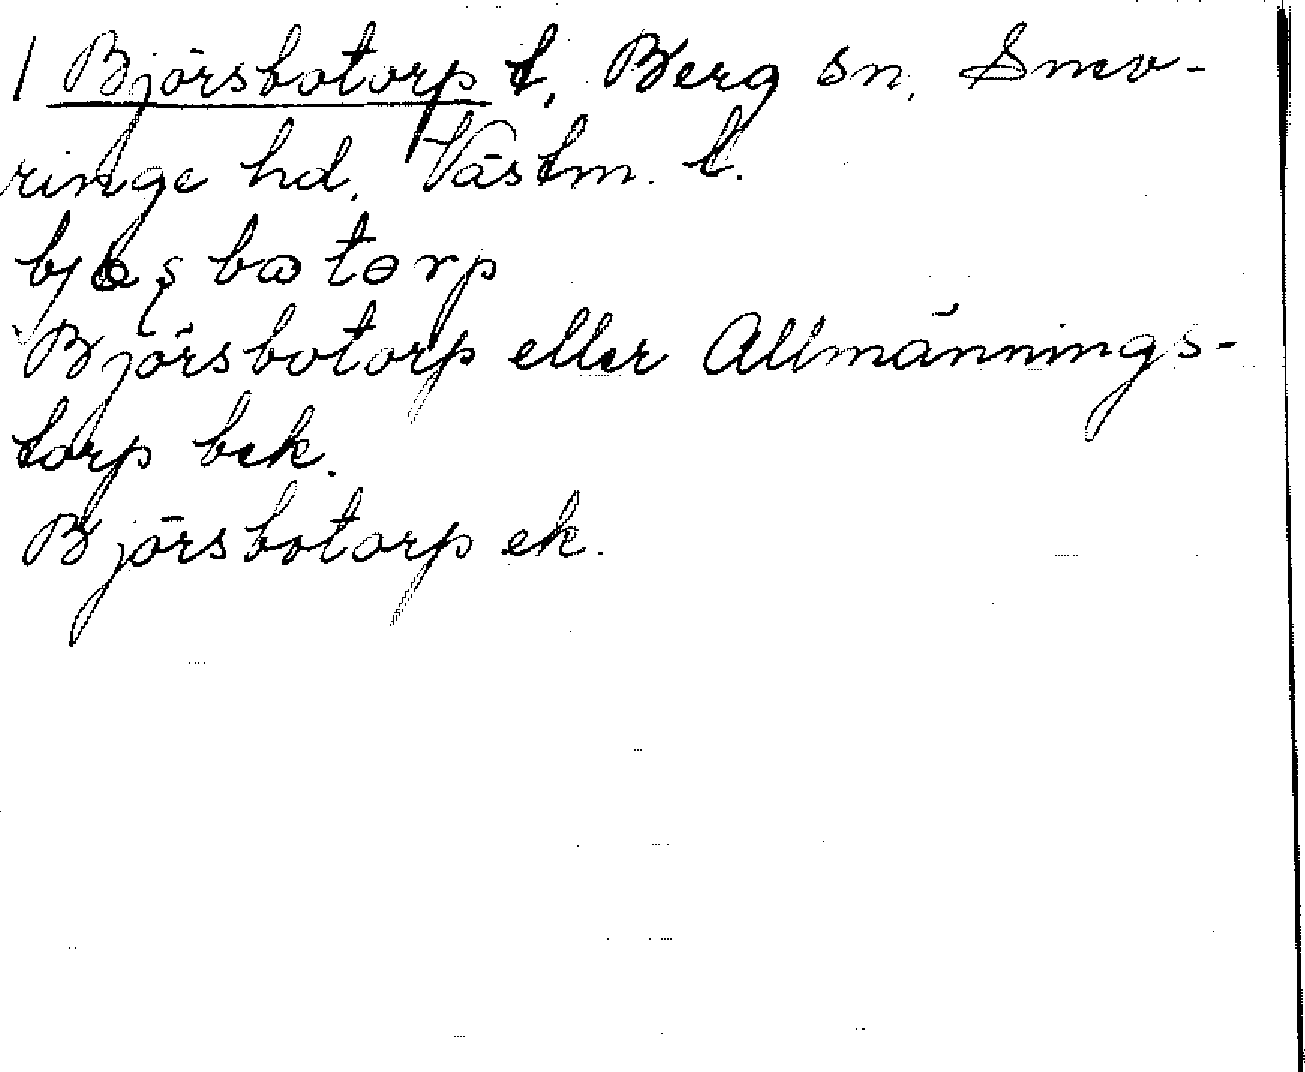 1 Björsbotorp t, Berg sn, Snev-
ringe hd. Västm. l.
Björsbotorp eller Allmännings-
torp bek.
Björsbotorp ek.